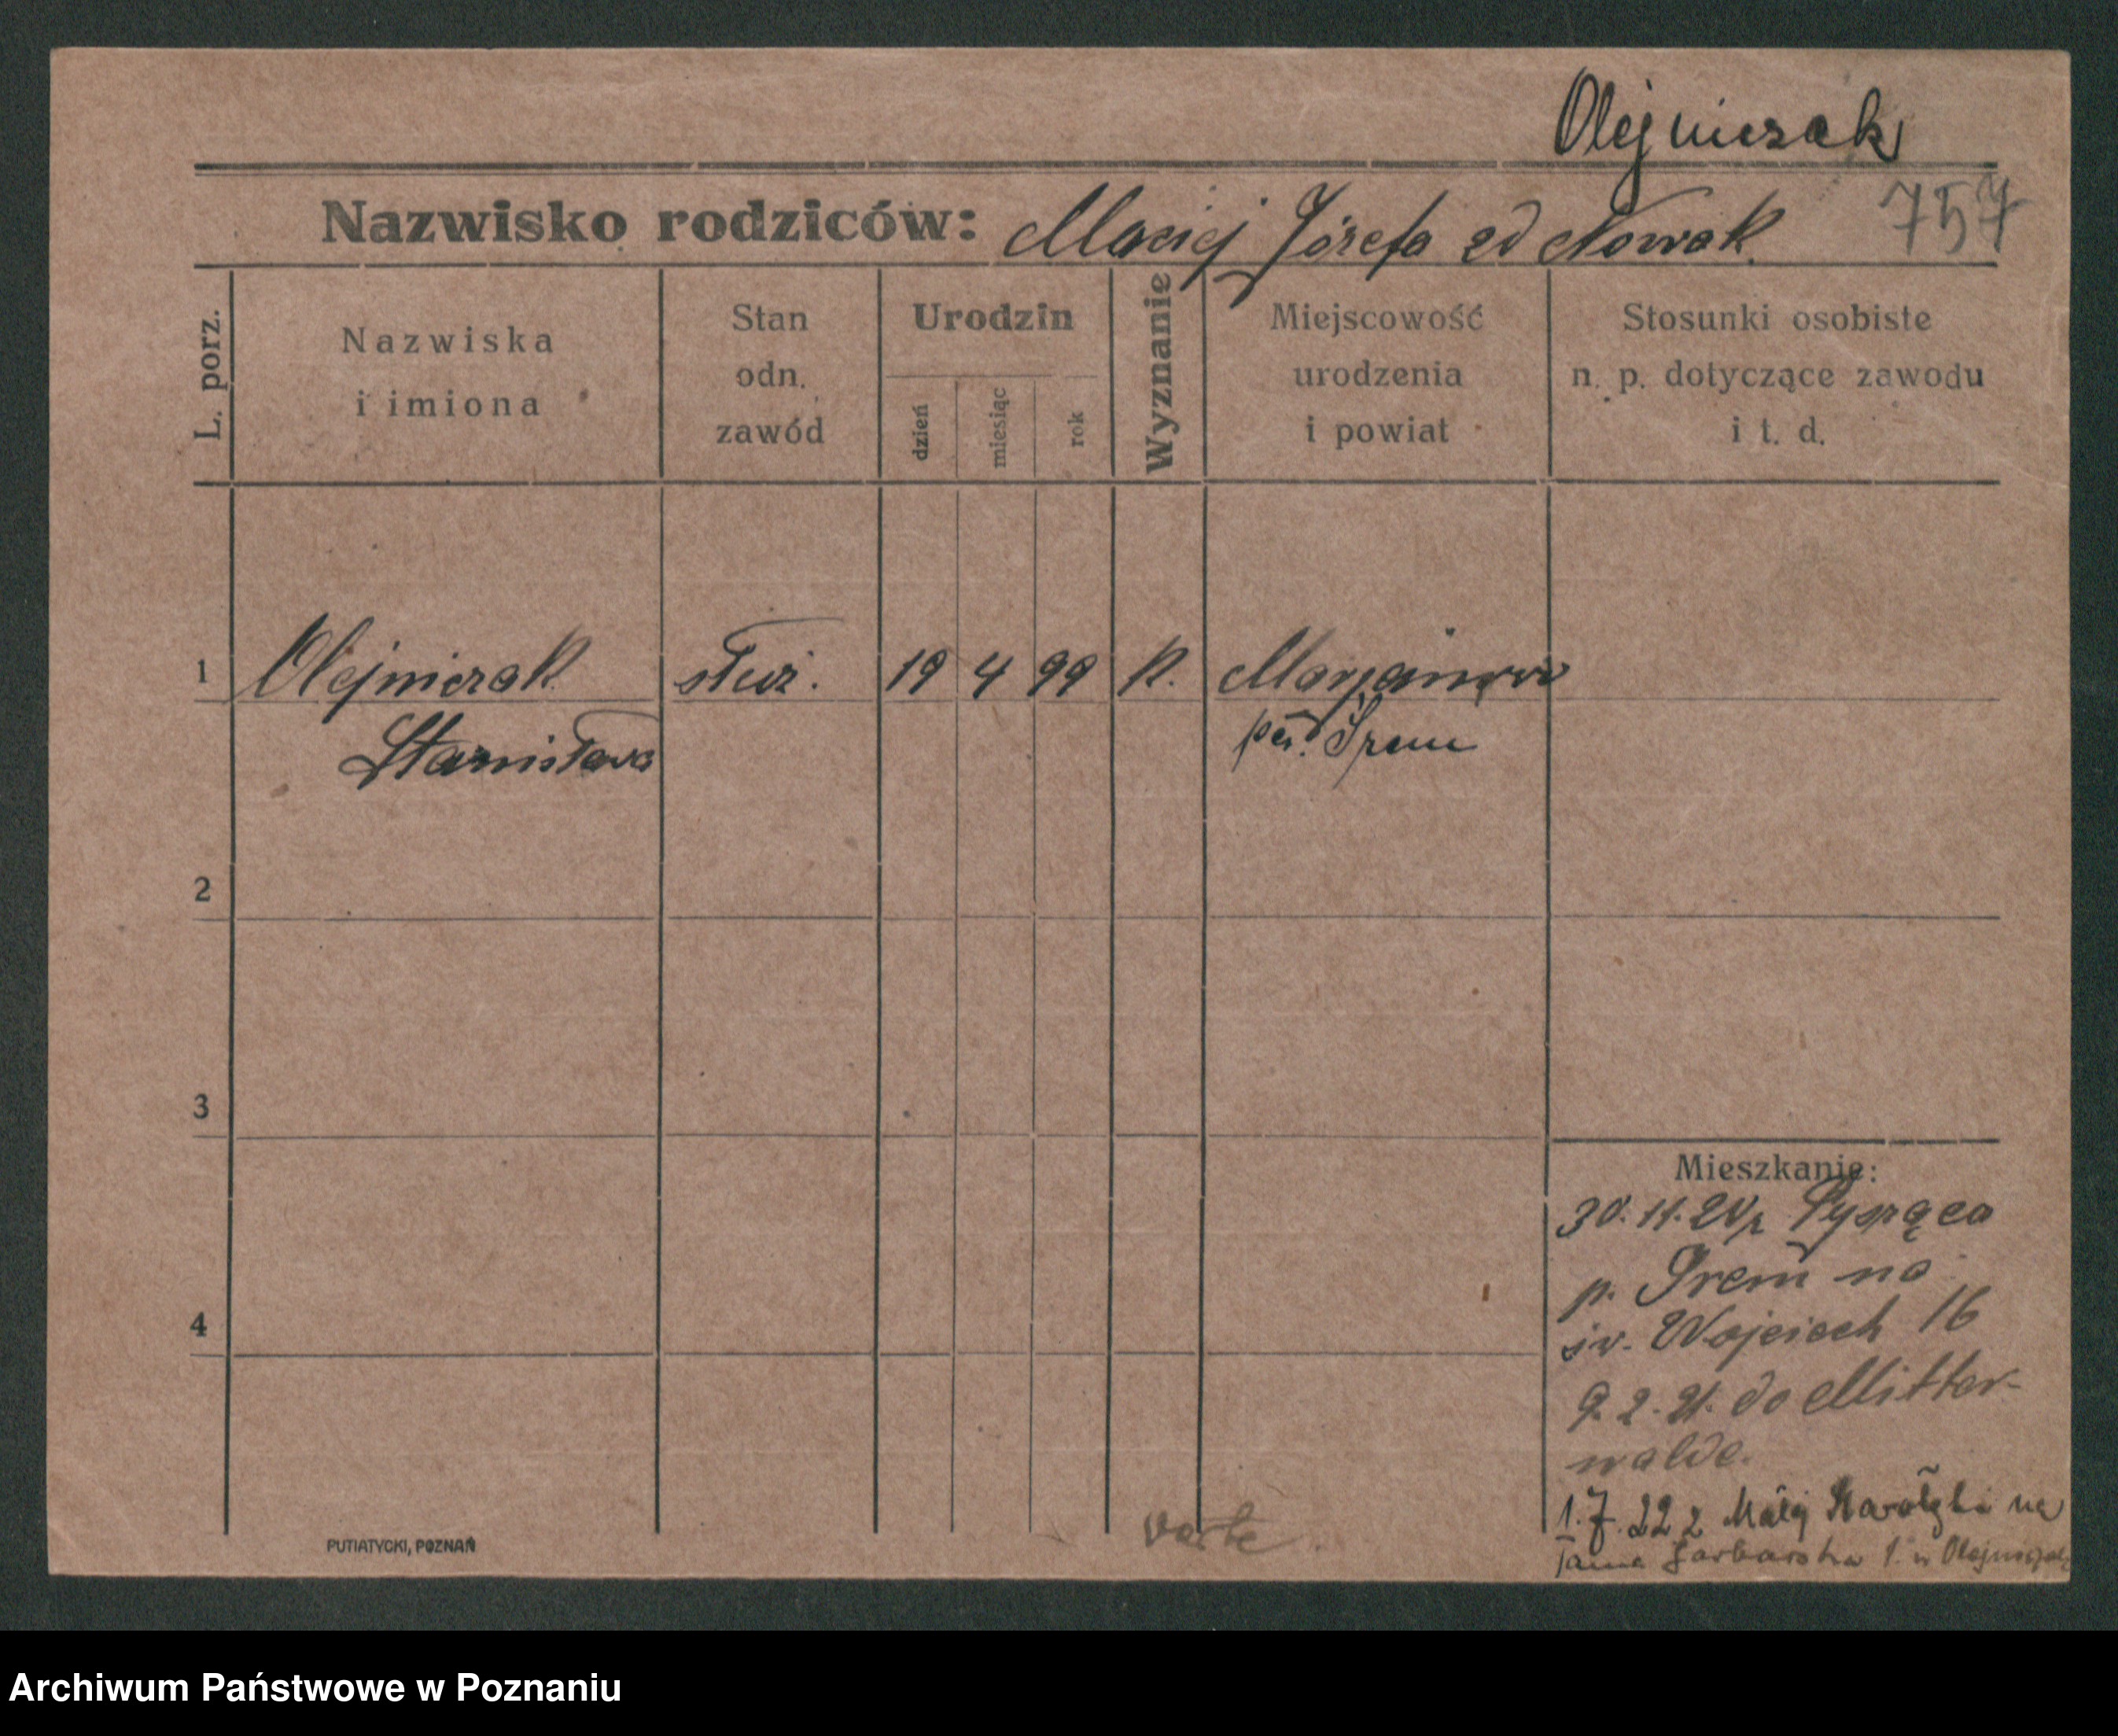 Olejniczak
Nazwisko rodziców: Maciej Józefa zd Nowak
757
L. porz.
Nazwiska
i imiona
Stan
odn.
zawód
Urodzin
dzień
miesiąc
rok
Wyznanie
Miejscowość
urodzenia
i powiat
Stosunki osobiste
n. p. dotyczące zawodu
i t. d.
1 Olejniczak służ. 19 4 99 k.
Stanisława pow. Śrem
2
3
4
Mieszkanie:
30.11.20 z Pysząca
p. Śrem na
św. Wojciech 16
9.2.21. do Mitter-
walde.
1.7.22 z na
Tama Garbarska 1. u
verte
PUTIATYCKI, POZNAŃ
Archiwum Państwowe w Poznaniu